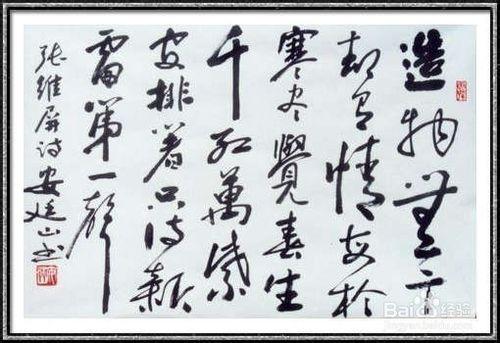 造物無言
却有情每於
寒尽覺春生
千红萬紫
安排着只待新
雷第一聲
张維屏诗安廷山书
Baidu经验
jingyan.baidu.com